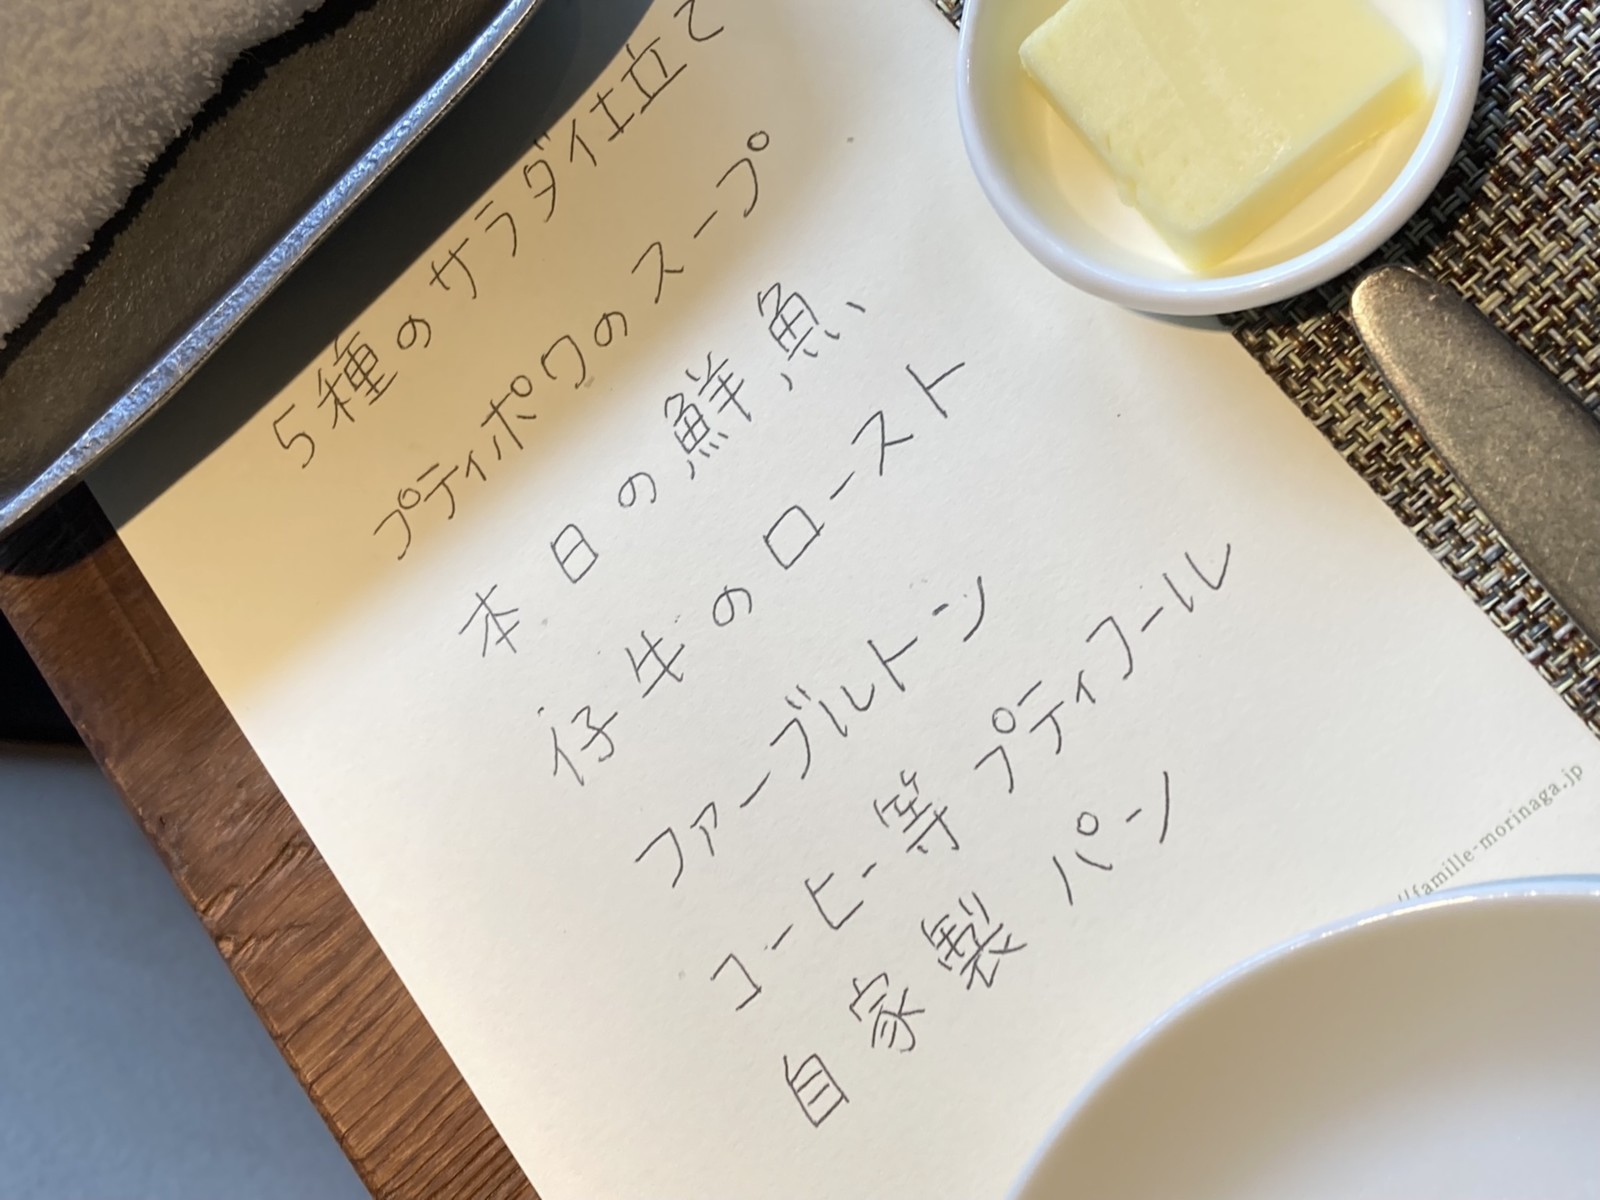 5種のサラダ仕立て
プティポワのスープ
本日の鮮魚、
仔牛のロースト
ファーブルトン
コーヒー等 プティフール
自家製 パン
//famille-morinaga.jp